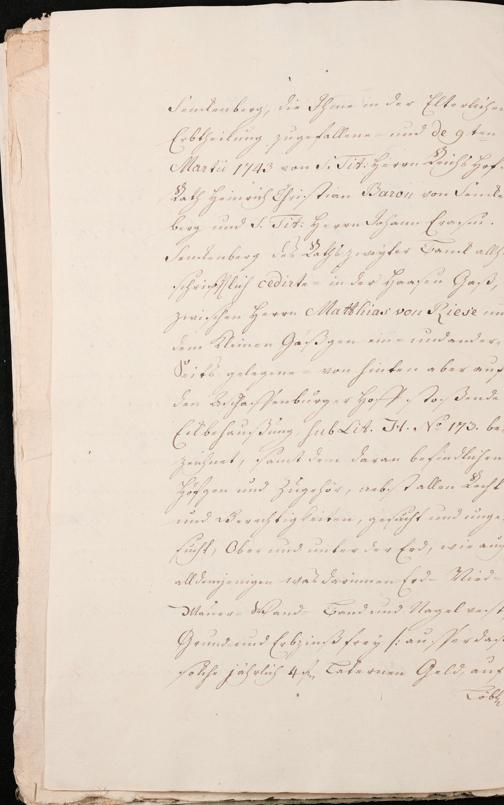 Senckenberg, die Ihme in der Elterlichen
Erbtheilung zugefallene- und de 9ten
Martii 1743 von S. Tit: Herrn Reichs Hof-
Rath Heinrich Christian Baron von Sencke
berg und S. Tit: Herrn Johann Erasm.
Senckenberg des Raths zweyter Banck allh.
schrifftlich cedirte- in der Haasen Gaß,
zwischen Herrn Matthias von Riese und
dem kleinen Gäßgen ein- und ander-
Seits gelegene- von hinten aber auf
den Aschaffenburger Hoff stoßende
Eckbehaußung sub Lit. No 173. be
zeichnet, samt dem daran befindlichen
Höfgen und Zugehör, nebst allen Recht
und Gerechtigkeiten, gesucht und unge
sucht, Ober und unter der Erd, wie auch
all demjenigen was darinnen Erd- Nied-
Mauer- Wand- Band und Nagel vest,
Grund- und Erbzinß frey /: ausser daß
solche jährlich 4 f. Laternen Geld, auf
Löbl.